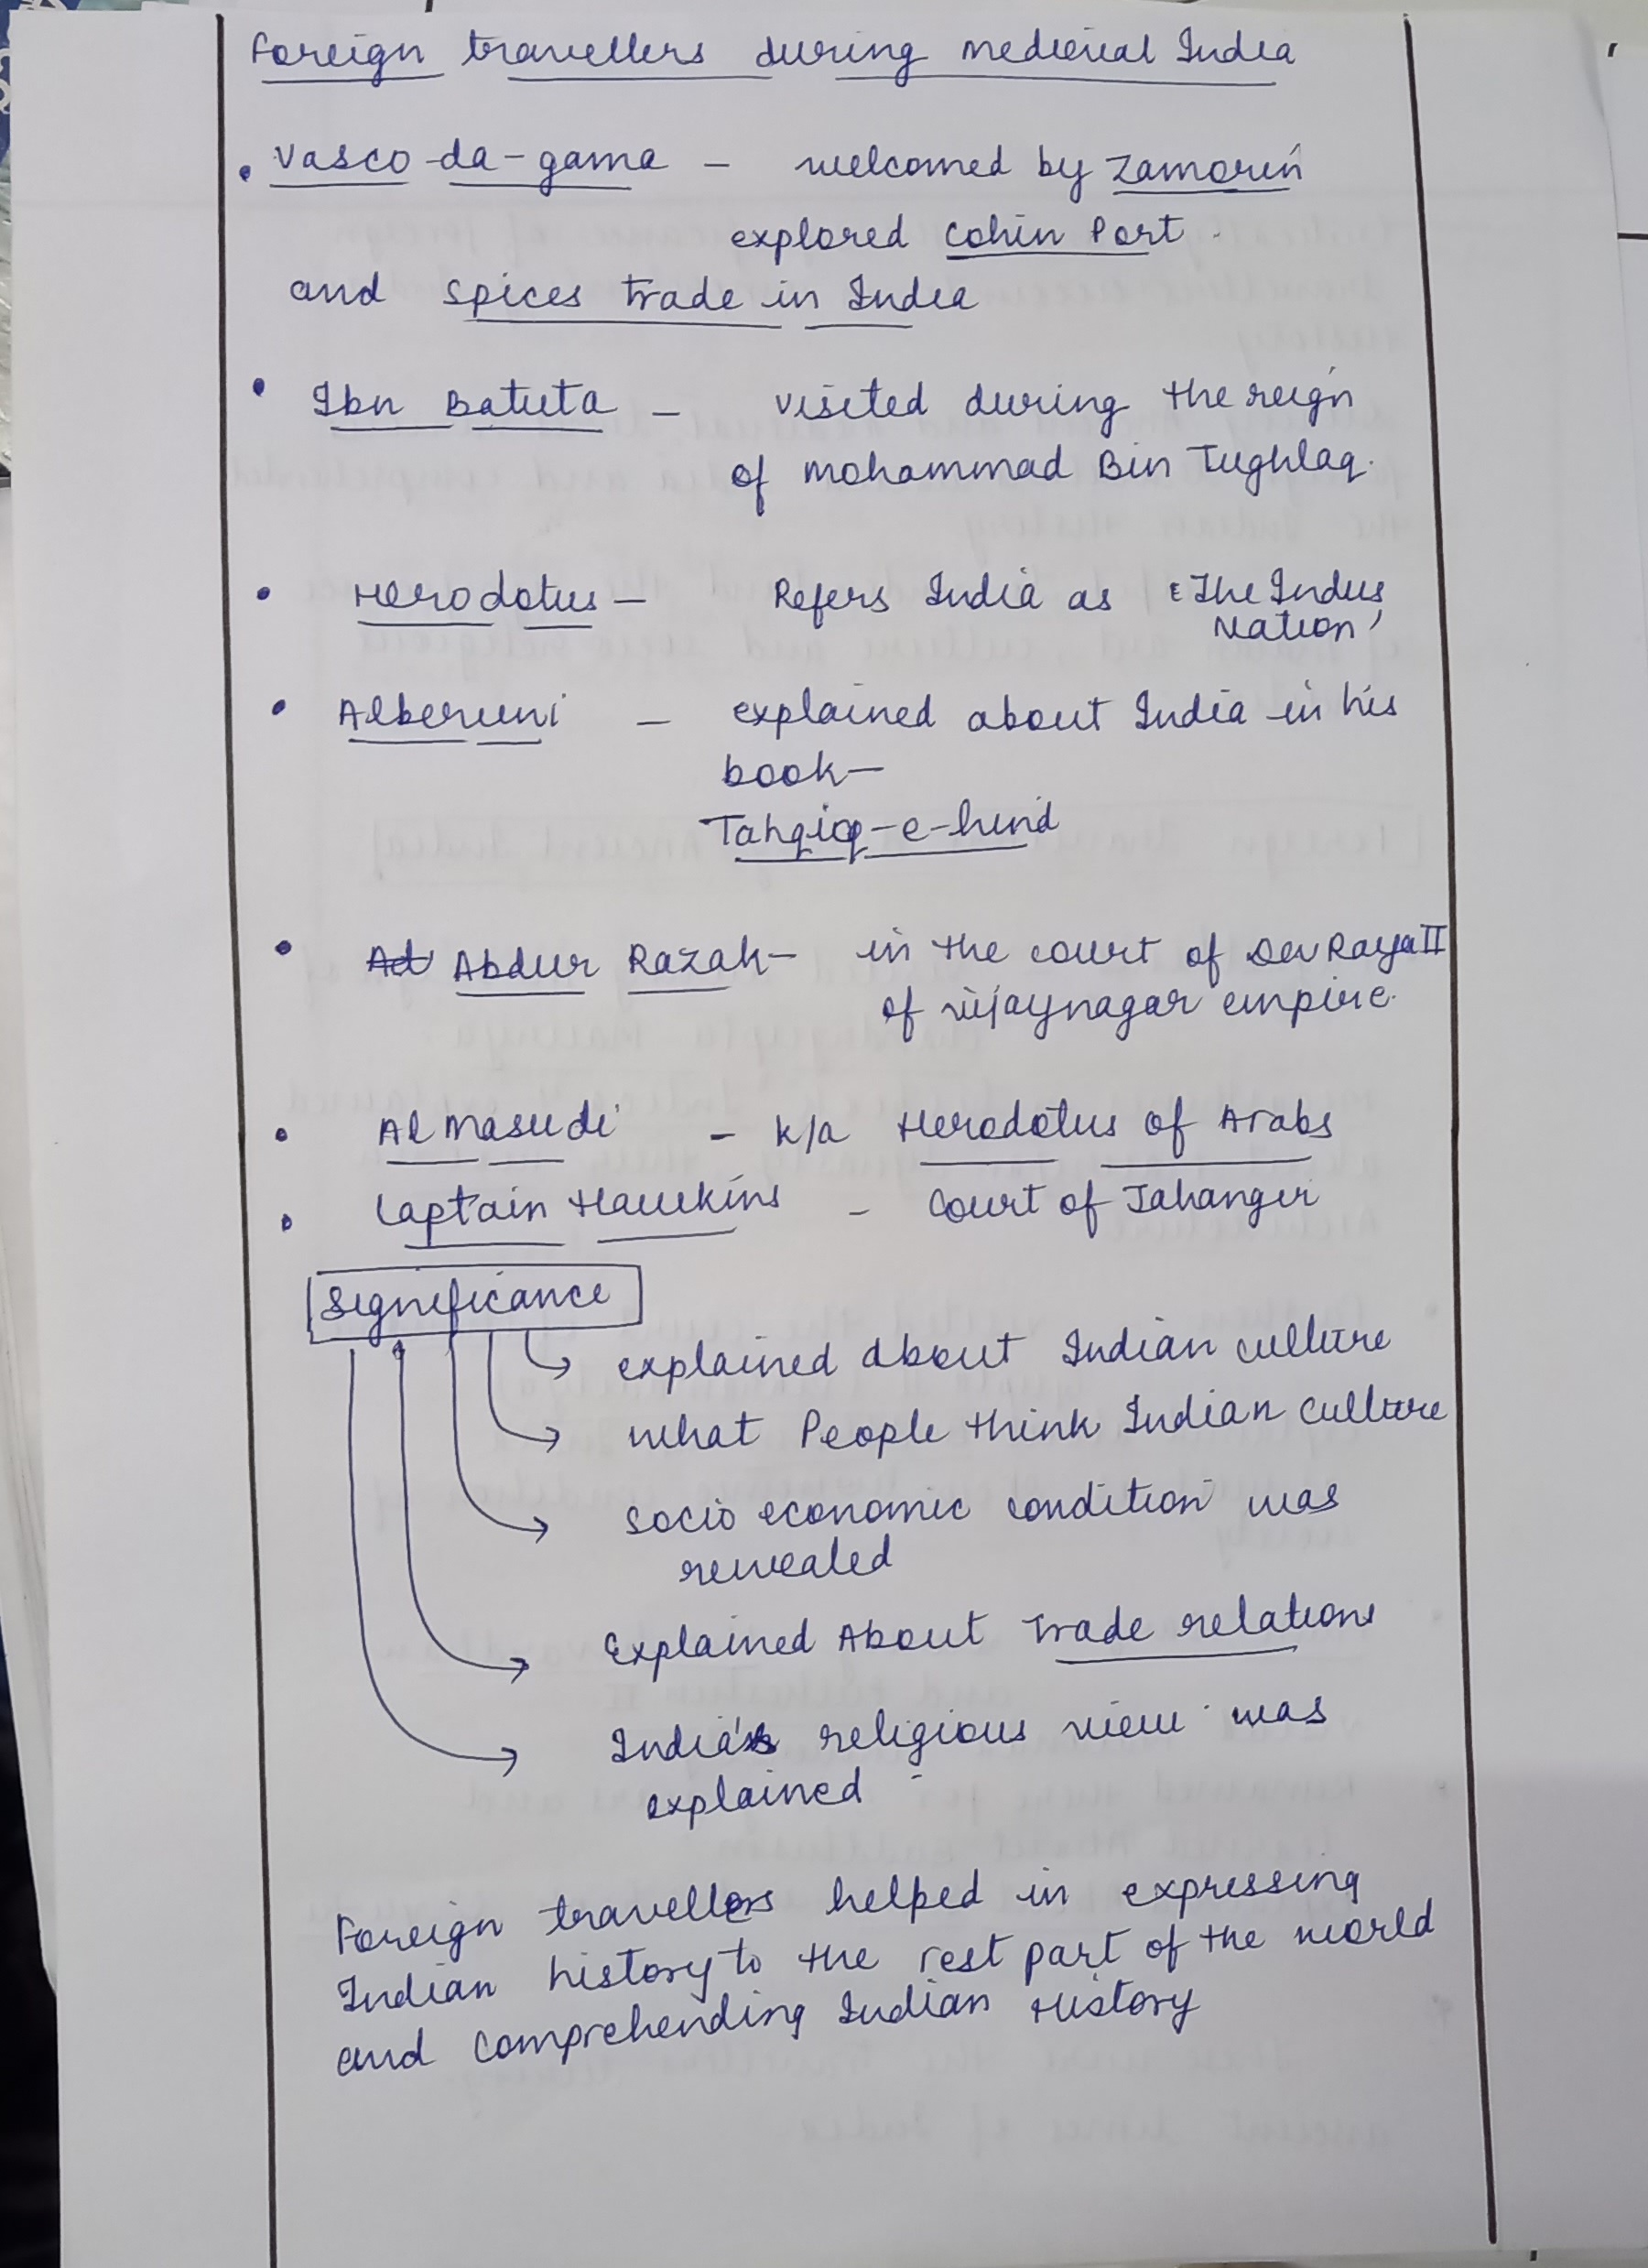 Foreign travellers during medieval India
• Vasco-da-gama - welcomed by Zamorin
explored Cohin Port
and spices trade in India
• Ibn Batuta - visited during the reign
of Mohammad Bin Tughlaq.
• Herodotus - Refers India as 'The Indus
Nation'
• Alberuni - explained about India in his
book-
Tahqiq-e-hind
• Abdur Razak- in the court of Dev Raya II
of vijaynagar empire.
• Al Masudi - k/a Herodotus of Arabs
• Captain Hawkins - Court of Jahangir
Significance
explained about Indian culture
what People think Indian culture
socio economic condition was
revealed
Explained About Trade relations
India's religious view was
explained
Foreign travellers helped in expressing
Indian history to the rest part of the world
and comprehending Indian History